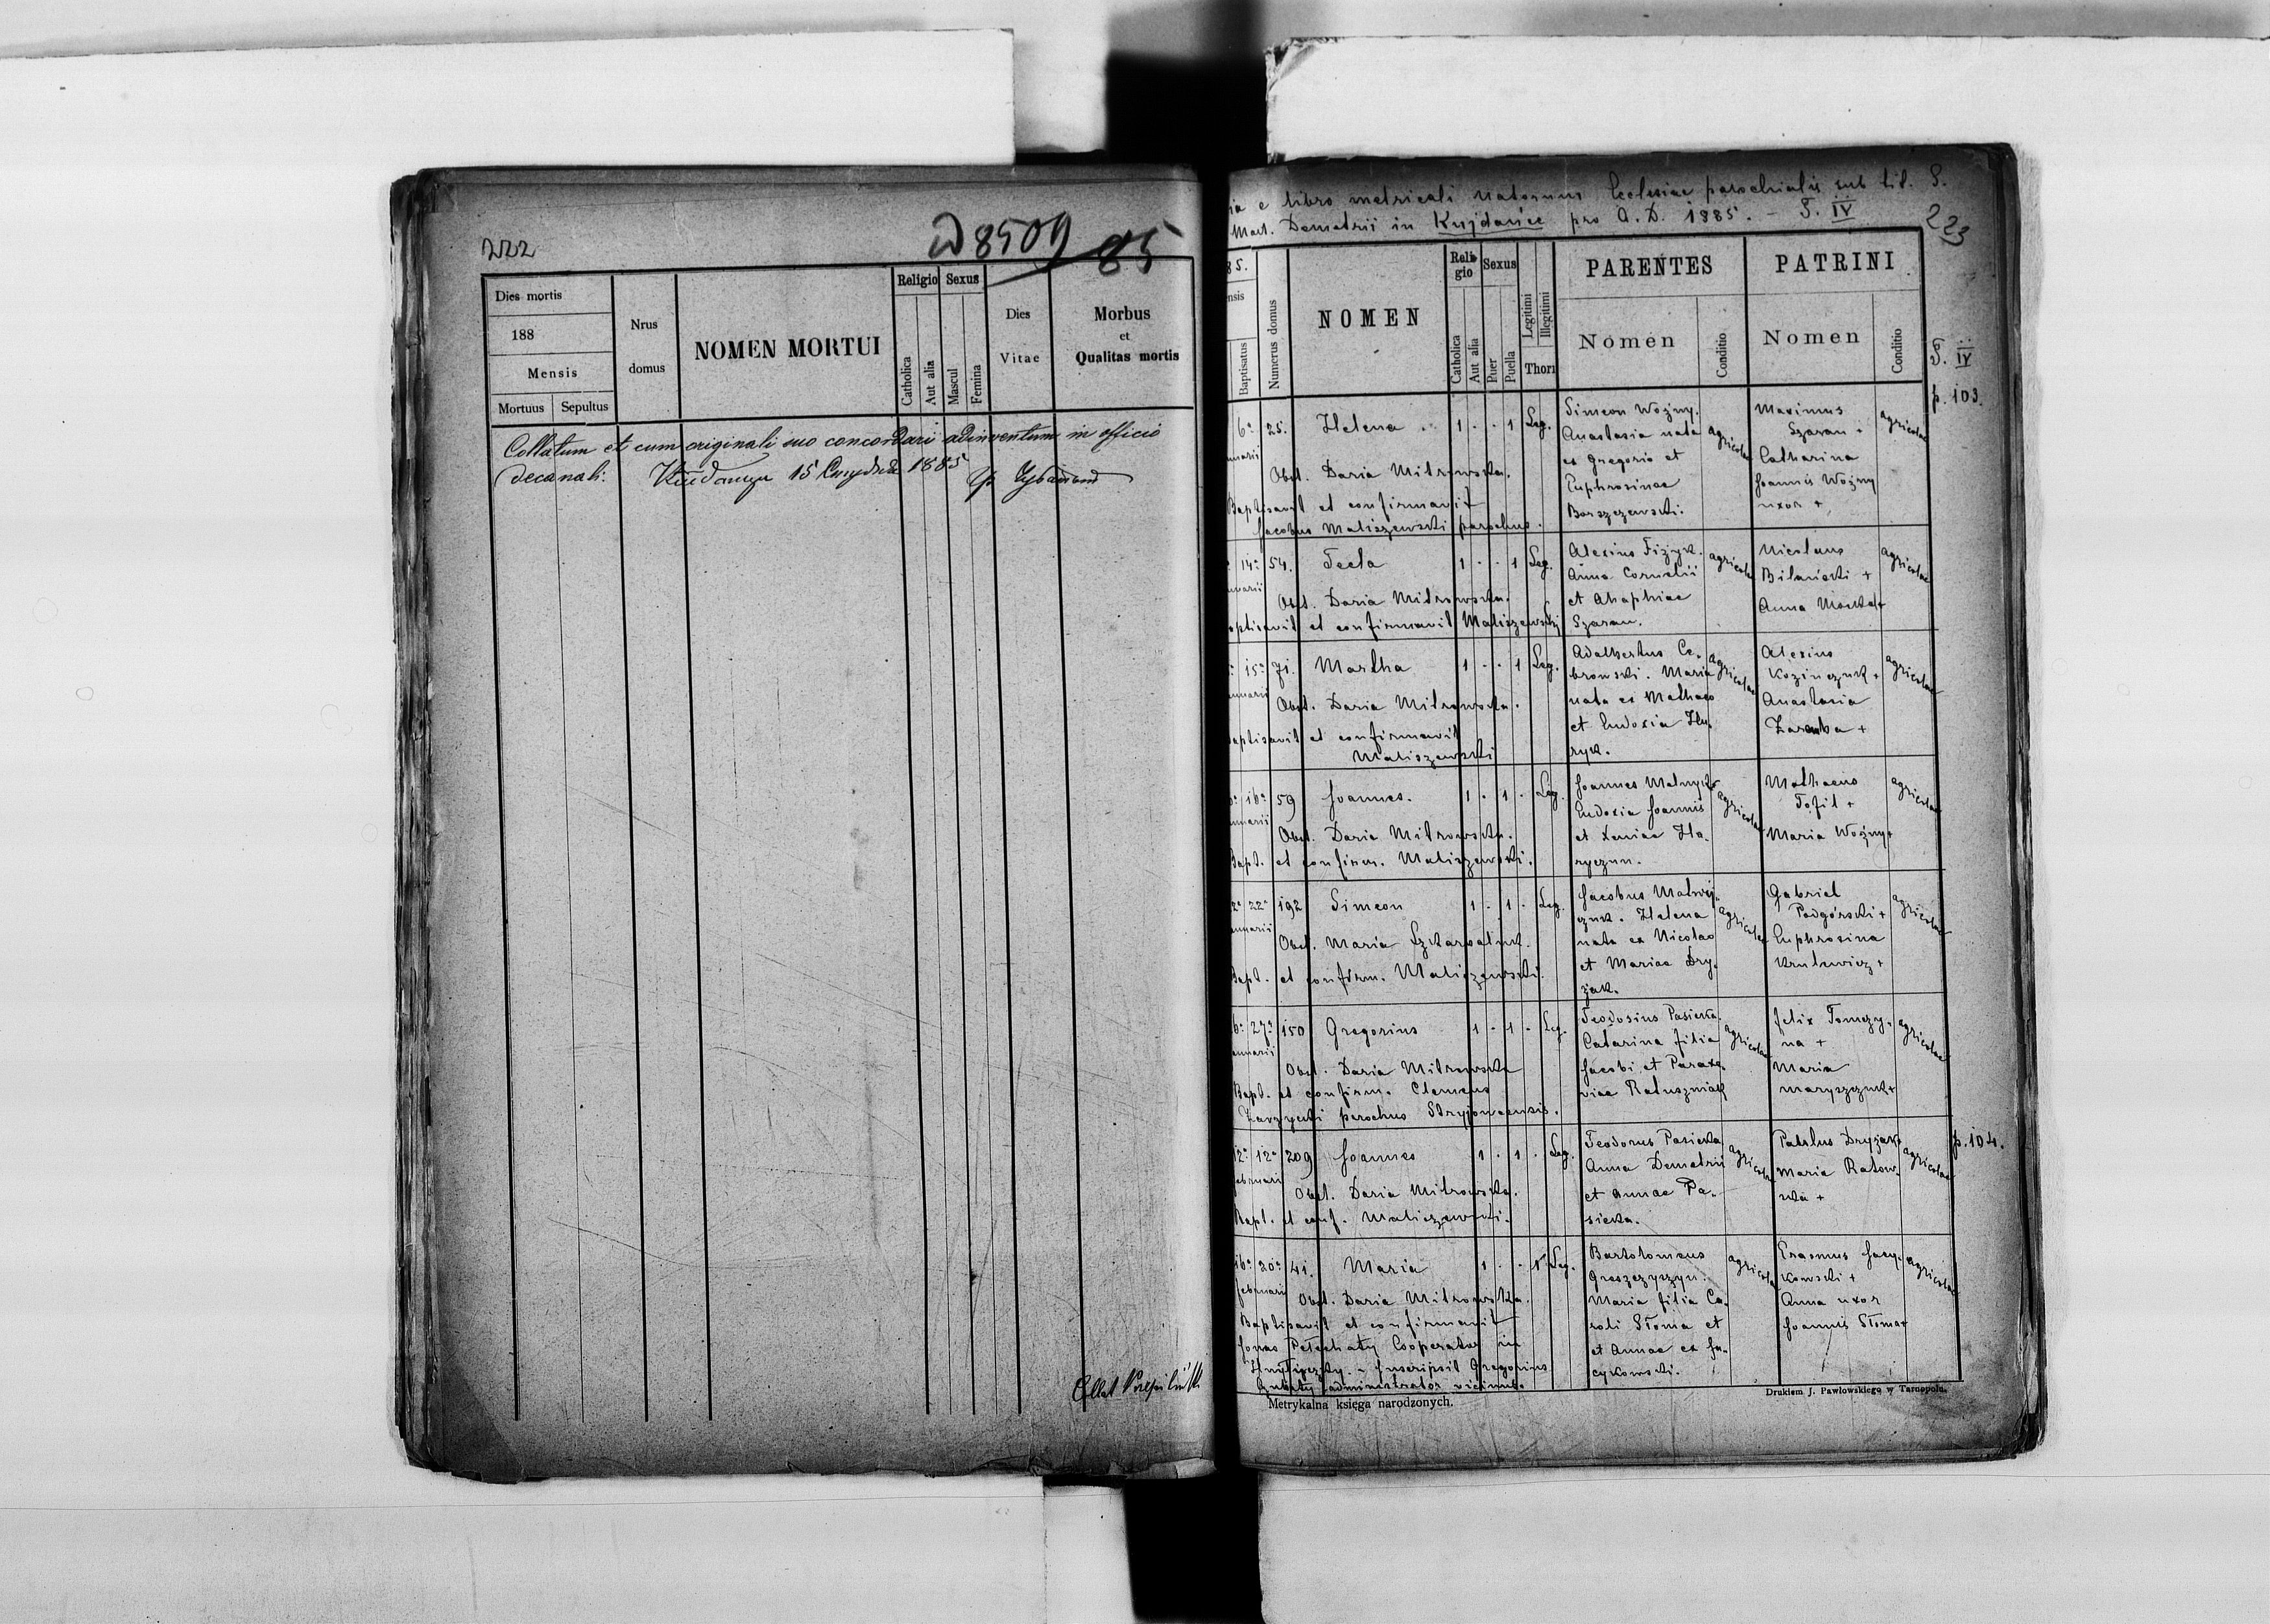 222
ad 8509
85
Dies mortis
188
Mensis
Mortuus Sepultus
Nrus domus
NOMEN MORTUI
Religio
Catholica
Aut alia
Sexus
Mascul
Femina
Dies Vitae
Morbus
et
Qualitas mortis
Collatum et cum originali suo concordari adinventum in officio
decanali. 15 1885
ia e libro metricali natorum Ecclesiae parochialis sub tit. S.
Mart. Demetrii in Kujdańce pro A. D. 1885. – T. IV
223
85.
nsis
Baptisatus
Numerus domus
NOMEN
Religio
Catholica
Aut alia
Sexus
Puer
Puella
Legitimi
Illegitimi
Thori
PARENTES
Nomen
Conditio
PATRINI
Nomen
Conditio
T. IV
p. 103.
6a 25. Helena 1 · · 1 Leg.
nuarii
Obst. Daria Mitrowska.
Baptisavit et confirmavit
Jacobus Maliszewski parochus.
Simeon Woźny.
Anastasia nata
ex Gregorio et
Euphrosinae
Borszczewski.
agricolae
Maximus
Szaran +
Catharina
Joannis Woźny
uxor +
agricolae
14a 54. Tecla 1 · · 1 Leg.
nuarii
Obst. Daria Mitrowska.
aptisavit et confirmavit Maliszewski
Alexius Fizyk.
Anna Cornelii
et Ahaphiae
Szaran.
agricolae
Nicolaus
Bilański +
Anna +
agricolae
15a 71. Martha 1 · · 1 Leg.
anuarii
Obst. Daria Mitrowska.
aptisavit et confirmavit
Maliszewski
Adalbertus Ce-
browski. Maria
nata ex Mathaeo
et Eudoxia Hu-
ryk.
agricolae
Alexius
Kozinczuk +
Anastasia
Zaremba +
agricolae
16a 59 Joannes. 1 · 1 · Leg.
nuarii
Obst. Daria Mitrowska.
Bapt. et confirm. Maliszewski.
Joannes Melnyk
Eudoxia Joannis
et Xeniae Ha-
ryczun.
agricolae
Mathaeus
Tofil +
Maria Woźny +
agricolae
2a 22a 192 Simeon 1 · 1 · Leg.
anuarii
Obst. Maria
Bapt. et confirm. Maliszewski.
Jacobus Matwij-
czuk. Helena
nata ex Nicolao
et Mariae Dry-
zak.
agricolae
Gabriel
Podgórski +
Euphrosina
Krulewicz +
agricolae
6a 27a 150 Gregorius 1 · 1 · Leg.
anuarii
Obst. Daria Mitrowska
Bapt. et confirm. Clemens
Zarzycki parochus Stryjowcensis.
Teodosius Pasieka.
Catarina filia
Jacobi et Paraxe-
viae Ratuszniak
agricolae
Felix Tomczy-
na +
Maria
Maryszczuk +
agricolae
12a 12a 209 Joannes 1 · 1 · Leg.
februarii
Obst. Daria Mitrowska.
Bapt. et conf. Maliszewski.
Teodorus Pasieka
Anna Demetrii
et Annae Pa-
sieka.
agricolae
Paulus Dryzak +
Maria Ratow-
ska +
agricolae
p. 104.
16a 20a 41. Maria 1 · · 1 Leg.
februarii
Obst. Daria Mitrowska.
Baptisavit et confirmavit
Jonas Pełechaty Cooperator in
Inscripsit Gregorius
administrator vicinus.
Bartolomeus
Graszczyszyn.
Maria filia Ca-
roli Słoma et
et Annae ex Ja-
cykowski.
agricolae
Erasmus Jacy-
kowski +
Anna uxor
Joannis Słoma +
agricolae
Metrykalna księga narodzonych.
Drukiem J. Pawłowskiego w Tarnopolu.